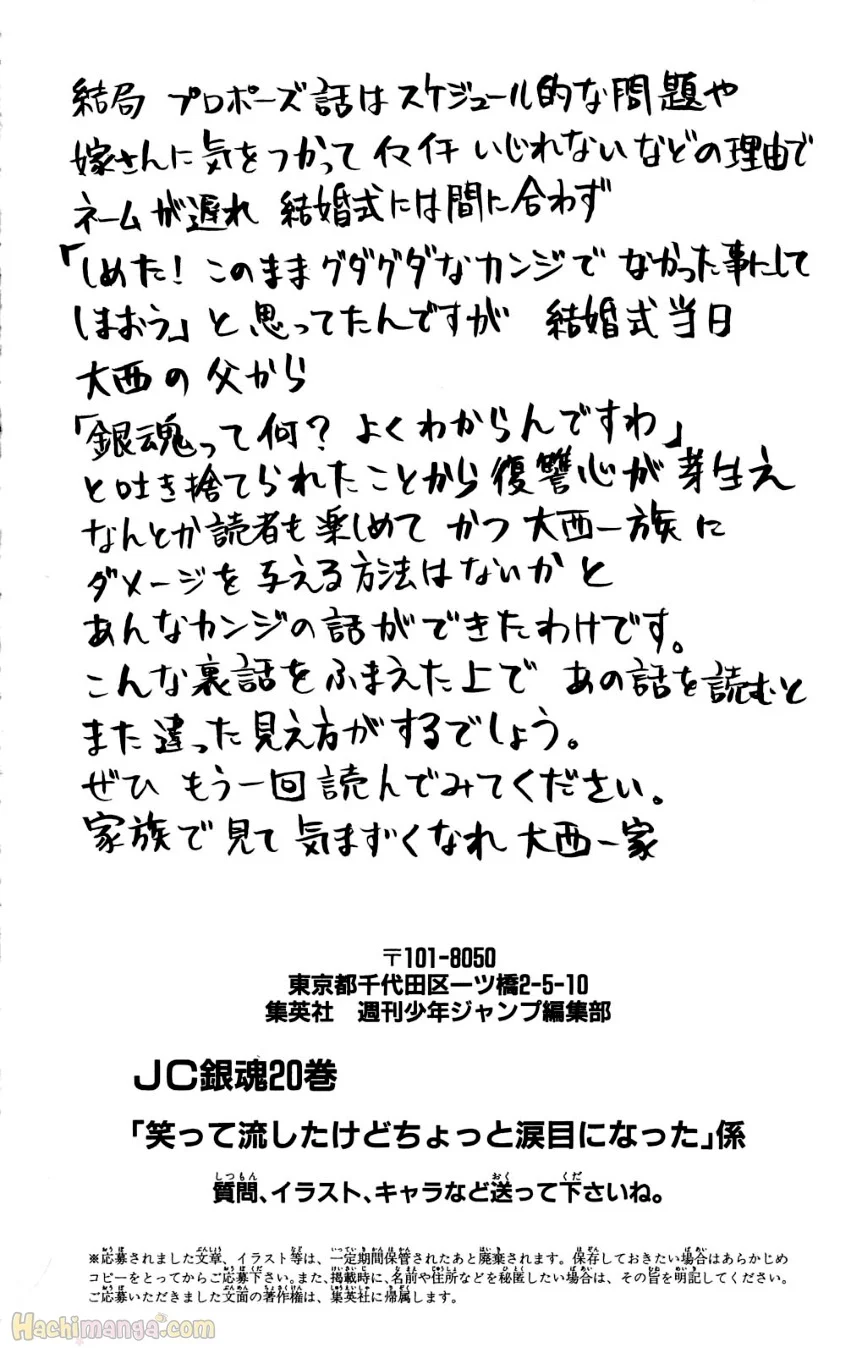 結局 プロポーズ話はスケジュール的な問題や
嫁さんに気をつかって イマイチ いじれない などの理由で
ネームが遅れ 結婚式には間に合わず
「しめた！このままグダグダなカンジで なかった事にして
しまおう」と思ってたんですが 結婚式当日
大西の父から
「銀魂って何？よくわからんですわ」
と吐き捨てられたことから復讐心が芽生え
なんとか読者も楽しめて かつ 大西一族に
ダメージを与える方法はないかと
あんなカンジの話ができたわけです。
こんな裏話をふまえた上で あの話を読むと
また違った見え方がするでしょう。
ぜひ もう一回読んでみてください。
家族で見て 気まずくなれ 大西一家
〒101-8050
東京都千代田区一ツ橋2-5-10
集英社 週刊少年ジャンプ編集部
JC銀魂20巻
「笑って流したけどちょっと涙目になった」係
質問、イラスト、キャラなど送って下さいね。
※応募されました文章、イラスト等は、一定期間保管されたあと廃棄されます。保存しておきたい場合はあらかじめ
コピーをとってからご応募下さい。また、掲載時に、名前や住所などを秘匿したい場合は、その旨を明記してください。
ご応募いただきました文面の著作権は、集英社に帰属します。
Hachimanga.com